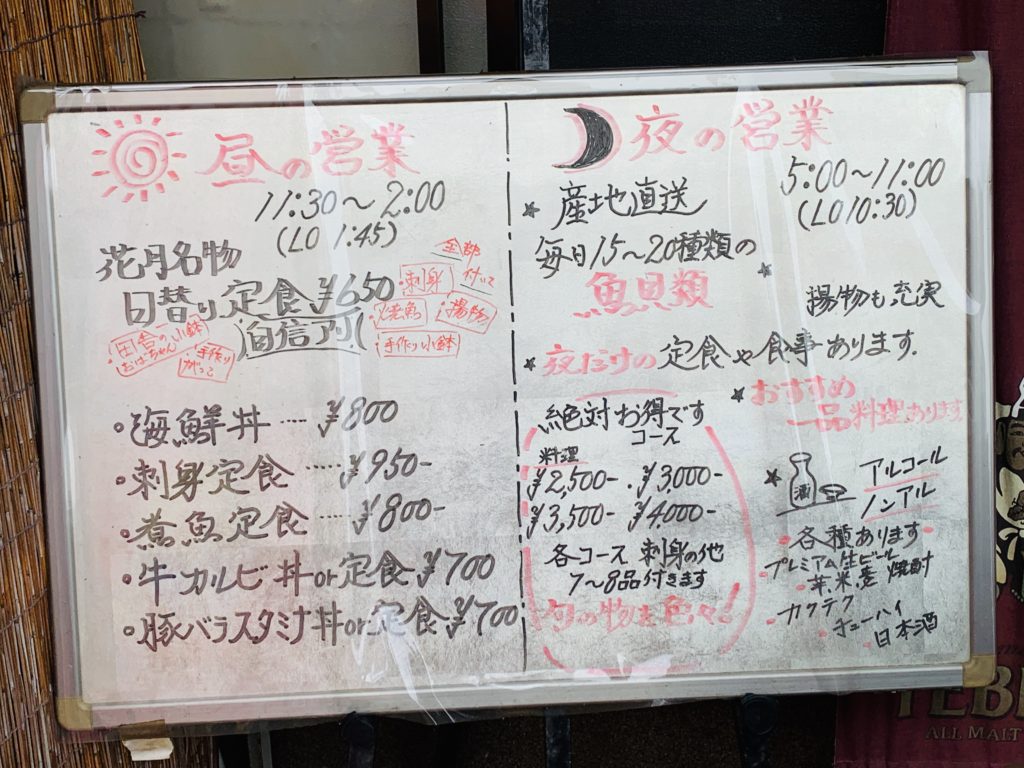 昼の営業
11:30～2:00
(LO 1:45)
花月名物
日替り定食 ¥650
自信アリ
全部
付いて
・刺身
・焼魚
・揚物
・手作り小鉢
・田舎の
おばーちゃん小鉢
・手作り
・海鮮丼 ···· ¥800
・刺身定食 ····· ¥950-
・煮魚定食 ··· ¥800-
・牛カルビ丼or定食 ¥700
・豚バラスタミナ丼or定食 ¥700
夜の営業
5:00～11:00
(LO 10:30)
★産地直送
毎日15～20種類の
魚貝類
★揚物も充実
★夜だけの定食や食事あります.
★おすすめ
一品料理あります
絶対お得です
コース
料理
¥2,500- . ¥3,000-
¥3,500- ¥4,000-
各コース 刺身の他
7～8品付きます
旬の物を色々!
★
酒
アルコール
ノンアル
・各種あります
・プレミアム生ビール
・芋.米.麦 焼酎
・カクテク
・チューハイ
・日本酒
ALL MALT